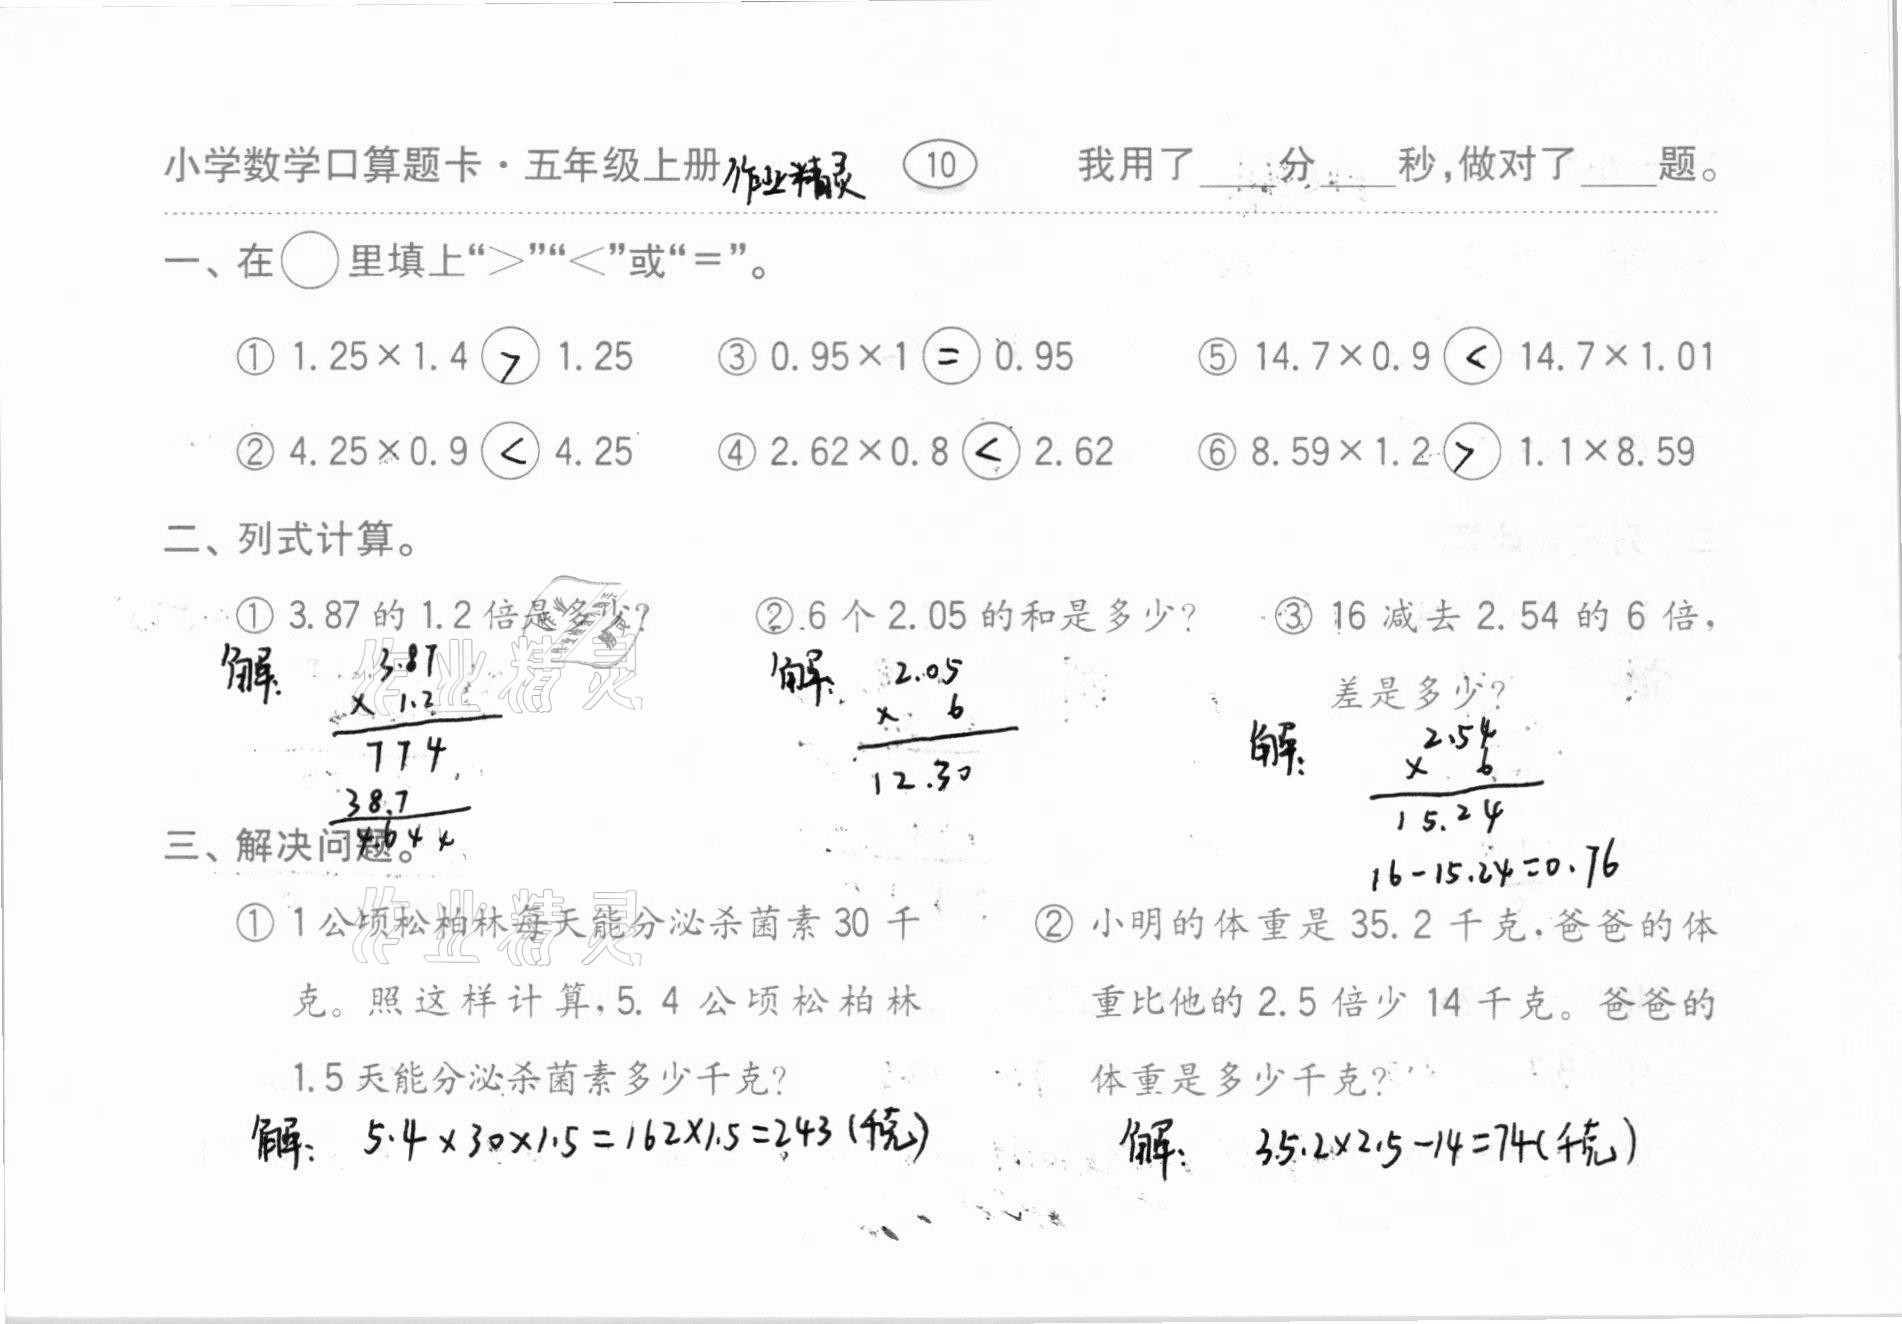 小学数学口算题卡·五年级上册 作业精灵 10 我用了____分____秒,做对了____题。
一、在○里填上“>”“<”或“=”。
① 1.25×1.4 > 1.25 ③ 0.95×1 = 0.95 ⑤ 14.7×0.9 < 14.7×1.01
② 4.25×0.9 < 4.25 ④ 2.62×0.8 < 2.62 ⑥ 8.59×1.2 > 1.1×8.59
二、列式计算。
① 3.87的1.2倍是多少? ② 6个2.05的和是多少? ③ 16减去2.54的6倍,
差是多少?
解: 3.87
× 1.2
774
38.7
4.644
解: 2.05
× 6
12.30
解: 2.54
× 6
15.24
16-15.24=0.76
三、解决问题。
① 1公顷松柏林每天能分泌杀菌素30千
克。照这样计算,5.4公顷松柏林
1.5天能分泌杀菌素多少千克?
解: 5.4×30×1.5=162×1.5=243(千克)
② 小明的体重是35.2千克,爸爸的体
重比他的2.5倍少14千克。爸爸的
体重是多少千克?
解: 35.2×2.5-14=74(千克)
作业精灵
作业精灵